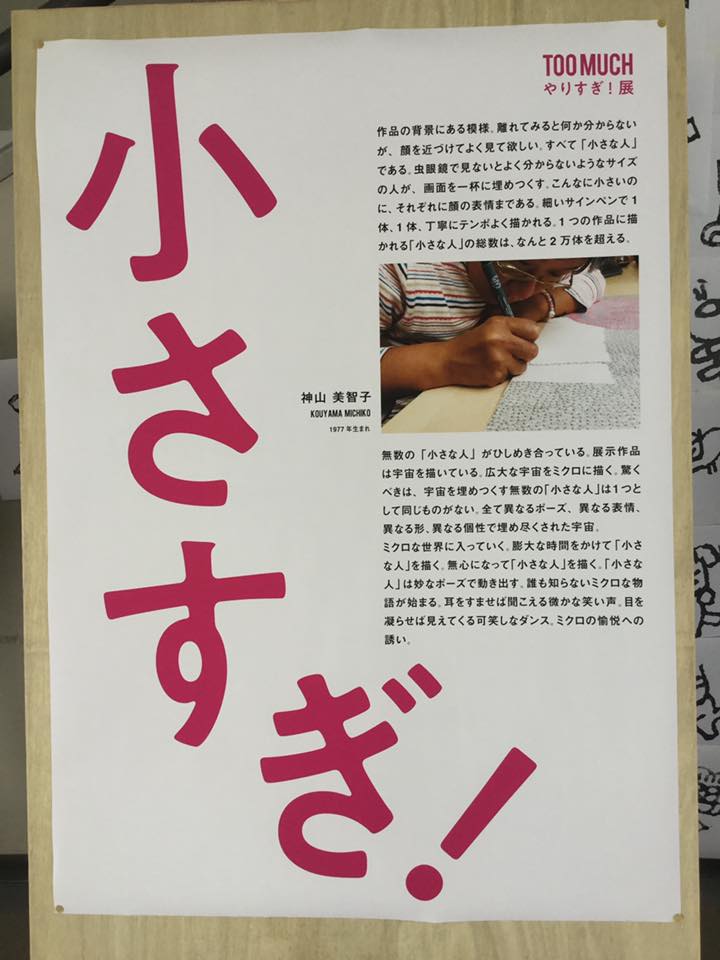 小さすぎ！
TOO MUCH
やりすぎ！展
作品の背景にある模様。離れてみると何か分からない
が、顔を近づけてよく見て欲しい。すべて「小さな人」
である。虫眼鏡で見ないとよく分からないようなサイズ
の人が、画面を一杯に埋めつくす。こんなに小さいの
に、それぞれに顔の表情まである。細いサインペンで1
体、1体、丁寧にテンポよく描かれる。1つの作品に描
かれる「小さな人」の総数は、なんと2万体を超える。
神山 美智子
KOUYAMA MICHIKO
1977年生まれ
無数の「小さな人」がひしめき合っている。展示作品
は宇宙を描いている。広大な宇宙をミクロに描く。驚く
べきは、宇宙を埋めつくす無数の「小さな人」は1つと
して同じものがない。全て異なるポーズ、異なる表情、
異なる形、異なる個性で埋め尽くされた宇宙。
ミクロな世界に入っていく。膨大な時間をかけて「小さ
な人」を描く。無心になって「小さな人」を描く。「小さな
人」は妙なポーズで動き出す。誰も知らないミクロな物
語が始まる。耳をすませば聞こえる微かな笑い声。目を
凝らせば見えてくる可笑しなダンス。ミクロの愉悦への
誘い。